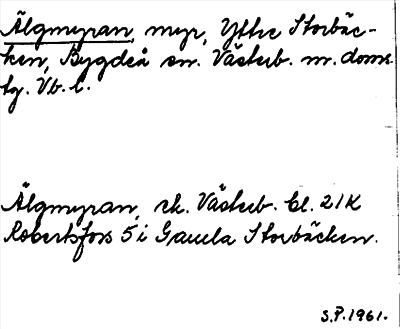 Älgmyran, myr, Yttre Storbäc-
ken, Bygdeå sn. Västerb. m. doms.
tg. Vb. l.
Älgmyran, ek. Västerb. bl. 21K
Robertsfors 5i Gamla Storbäcken.
S.P. 1961.